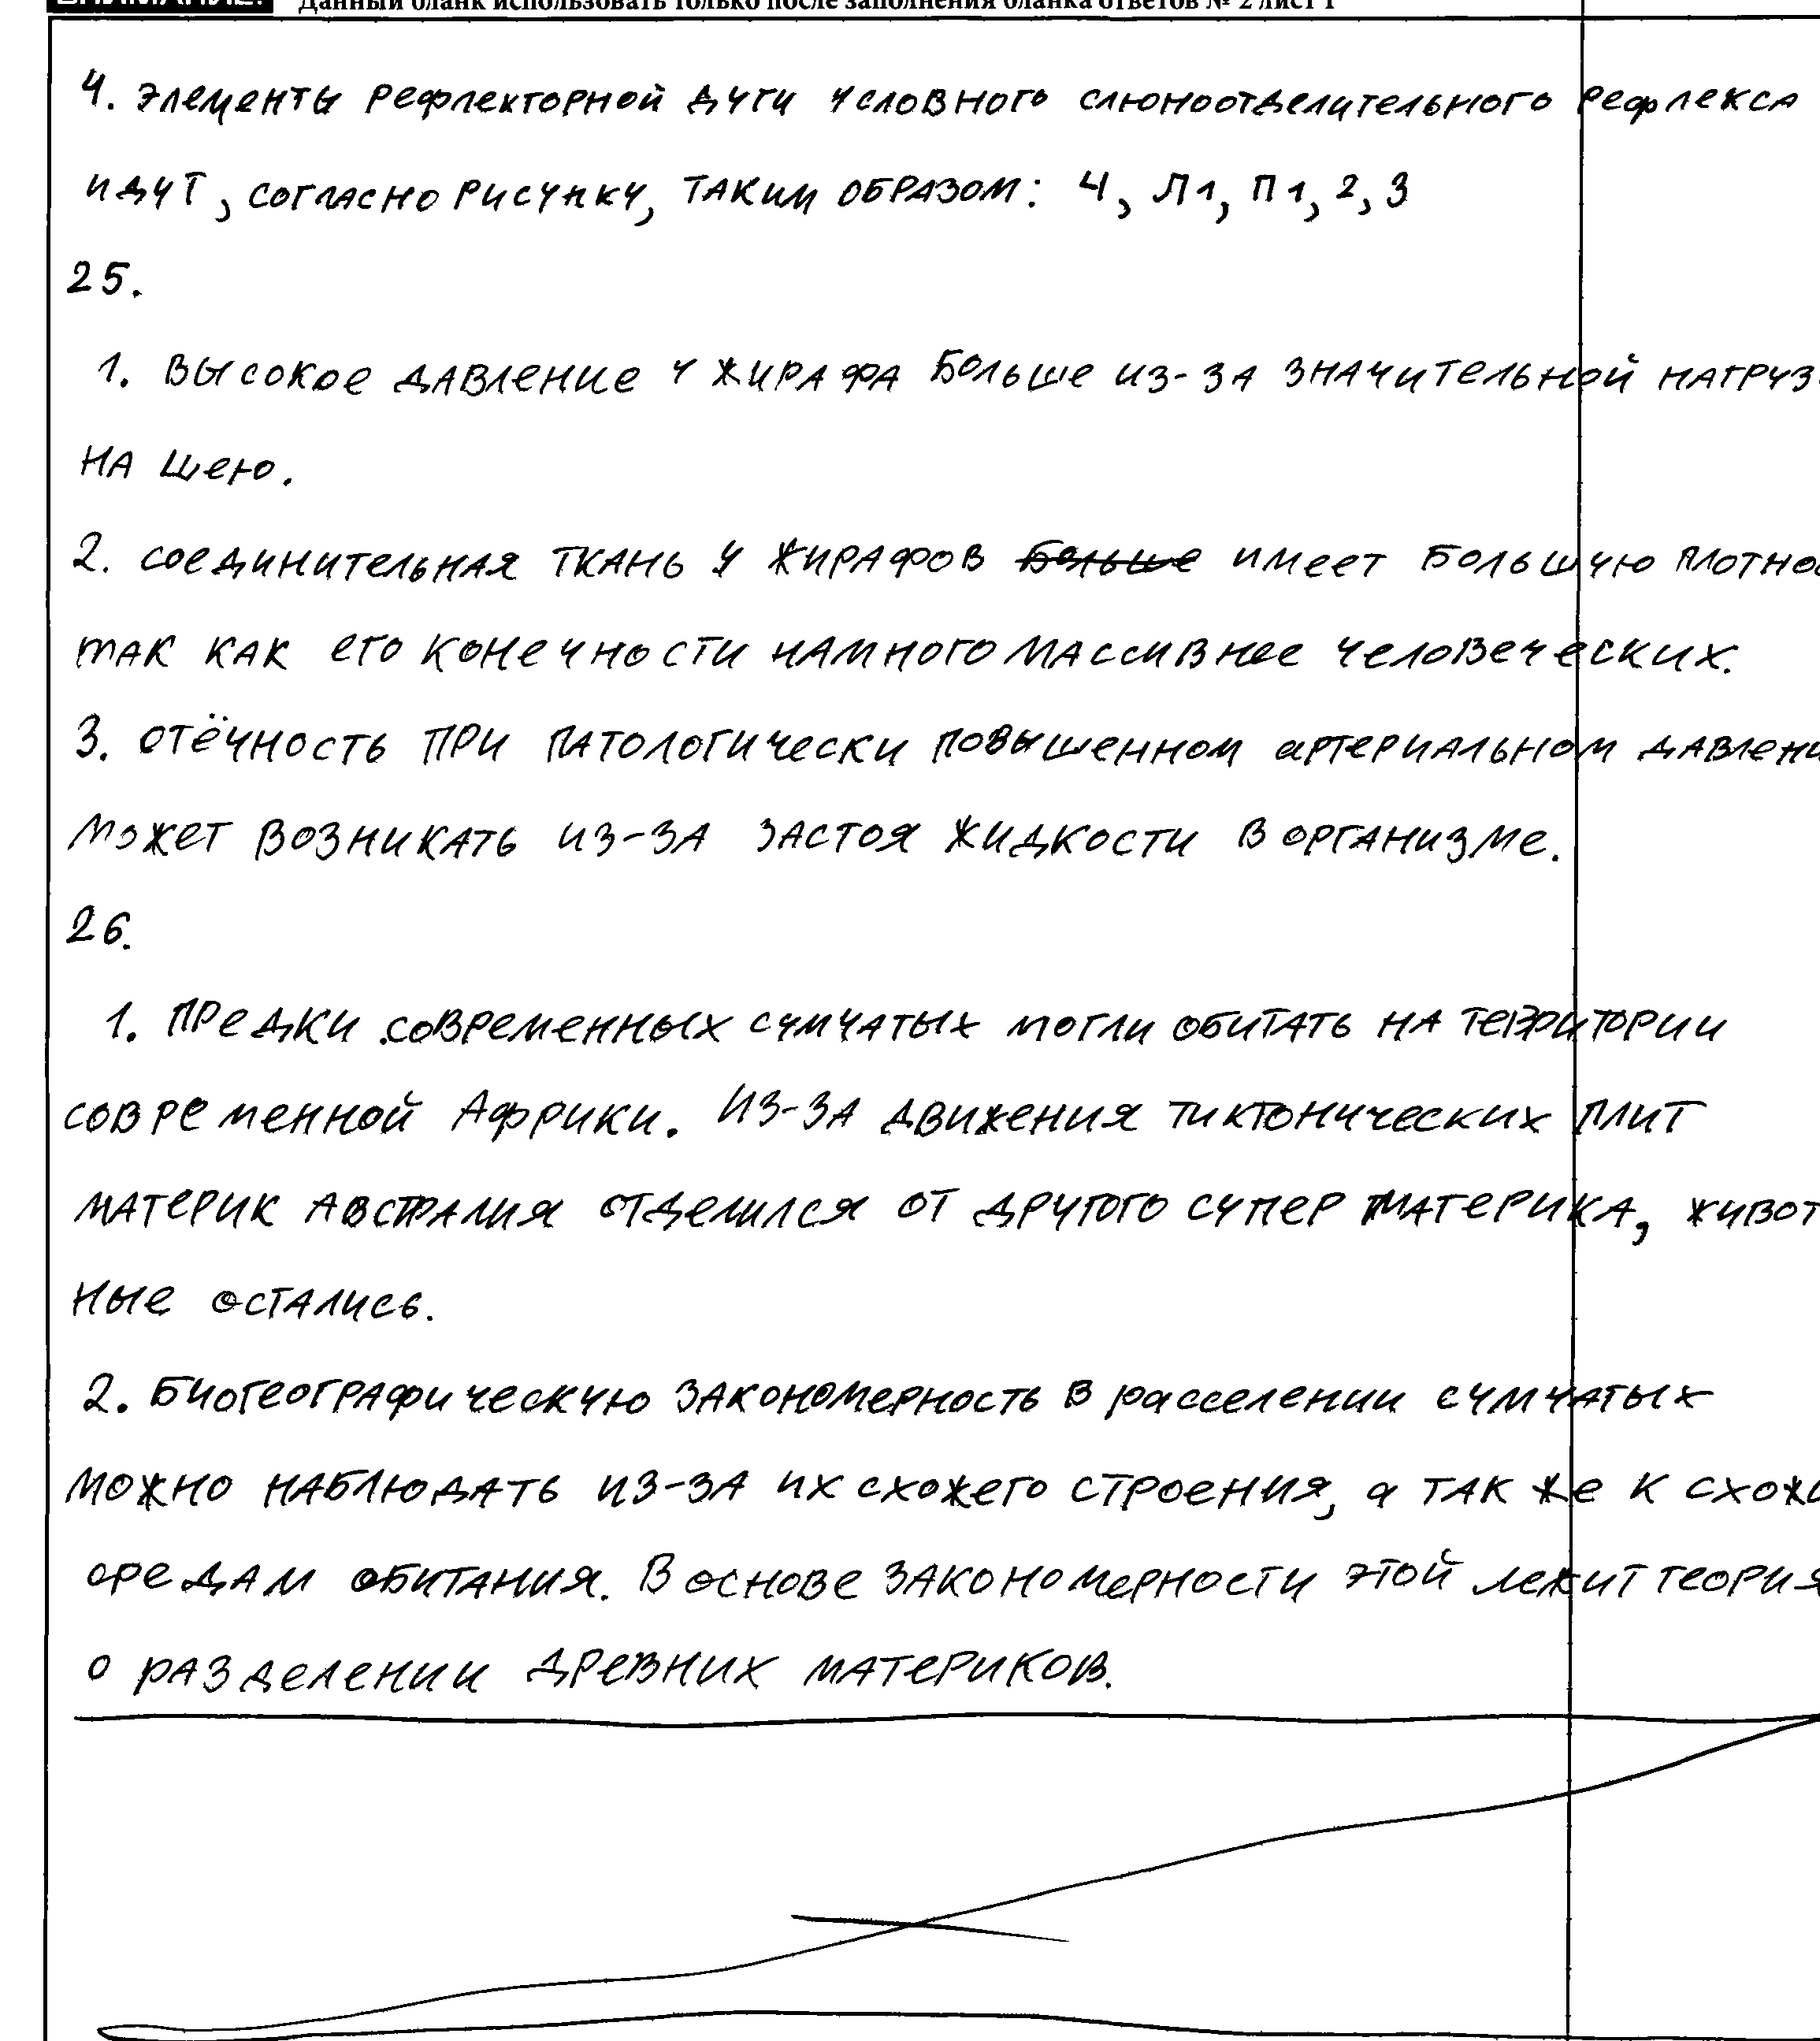 ВНИМАНИЕ! Данный бланк использовать только после заполнения бланка ответов № 2 лист 1
4. Элементы рефлекторной дуги условного слюноотделительного рефлекса
идут, согласно рисунку, таким образом: 4, Л1, П1, 2, 3
25.
1. Высокое давление у жирафа больше из-за значительной нагруз
на шею.
2. Соединительная ткань у жирафов больше имеет большую плотнос
так как его конечности намного массивнее человеческих.
3. Отёчность при патологически повышенном артериальном давлени
может возникать из-за застоя жидкости в организме.
26.
1. Предки современных сумчатых могли обитать на территории
современной Африки. Из-за движения тиктонических плит
материк Австралия отделился от другого супер материка, живот
ные остались.
2. Биогеографическую закономерность в расселении сумчатых
можно наблюдать из-за их схожего строения, а так же к схожи
средам обитания. В основе закономерности этой лежит теория
о разделении древних материков.